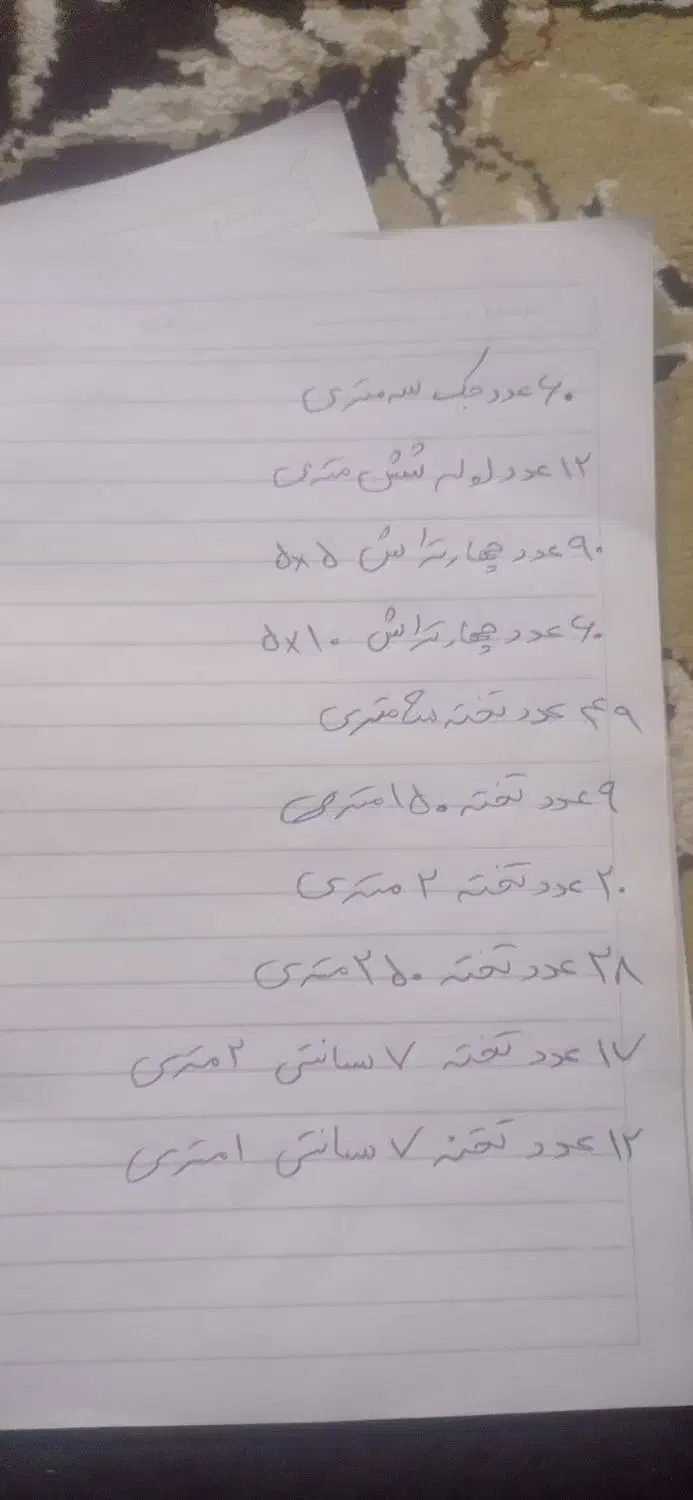 ۶۰ عدد جک سه متری
۱۲ عدد لوله شش متری
۹۰ عدد چهارتراش ۵×۵
۶۰ عدد چهارتراش ۱۰×۵
۴۹ عدد تخته متری
۹ عدد تخته ۱۵۰ متری
۲۰ عدد تخته ۲ متری
۲۸ عدد تخته ۲۵۰ متری
۱۷ عدد تخته ۷ سانتی ۲ متری
۱۲ عدد تخته ۷ سانتی ۱ متری